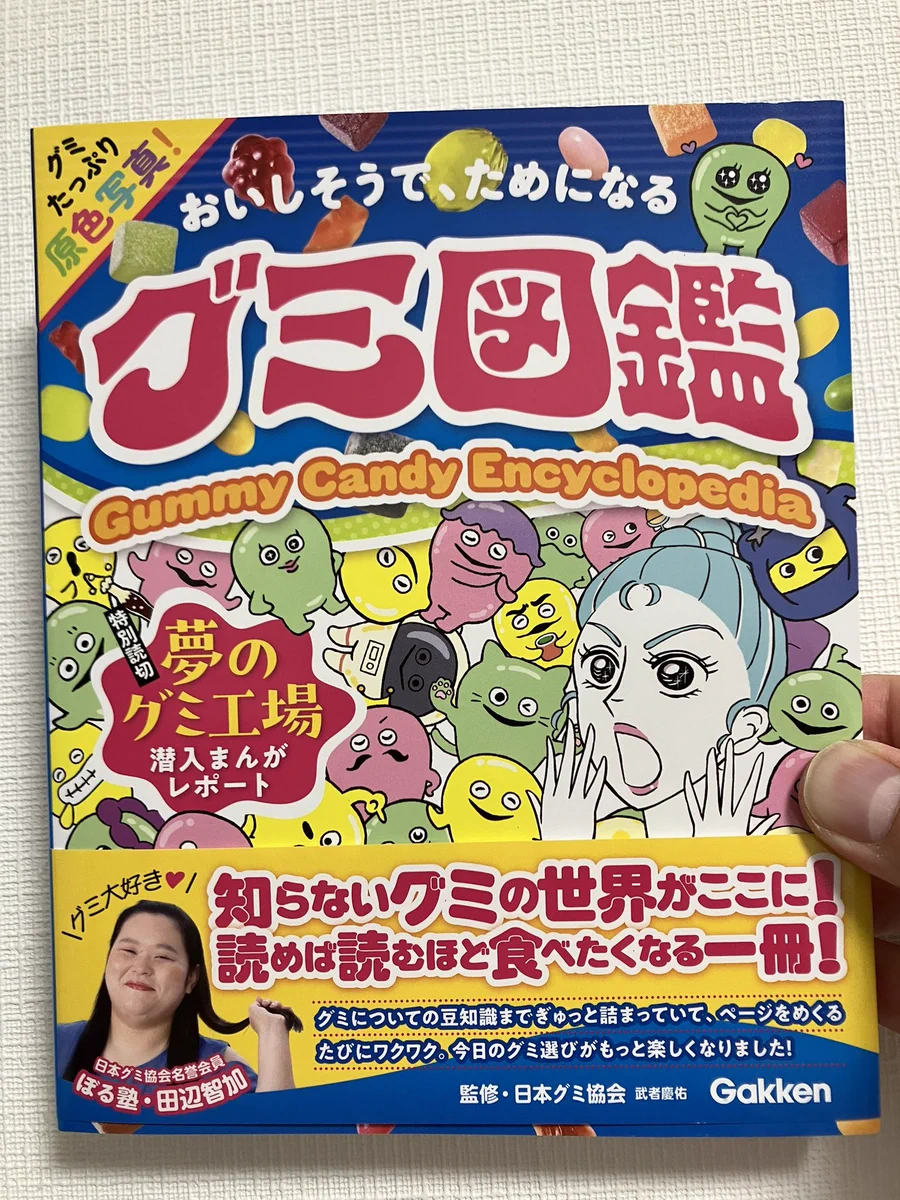 グミ
たっぷり
原色写真!
おいしそうで、ためになる
グミ図鑑
Gummy Candy Encyclopedia
特別読切
夢の
グミ工場
潜入まんが
レポート
グミ大好き♥
知らないグミの世界がここに!
読めば読むほど食べたくなる一冊!
グミについての豆知識までぎゅっと詰まっていて、ページをめくる
たびにワクワク。今日のグミ選びがもっと楽しくなりました!
日本グミ協会名誉会員
ぼる塾・田辺智加
監修・日本グミ協会 武者慶佑
Gakken